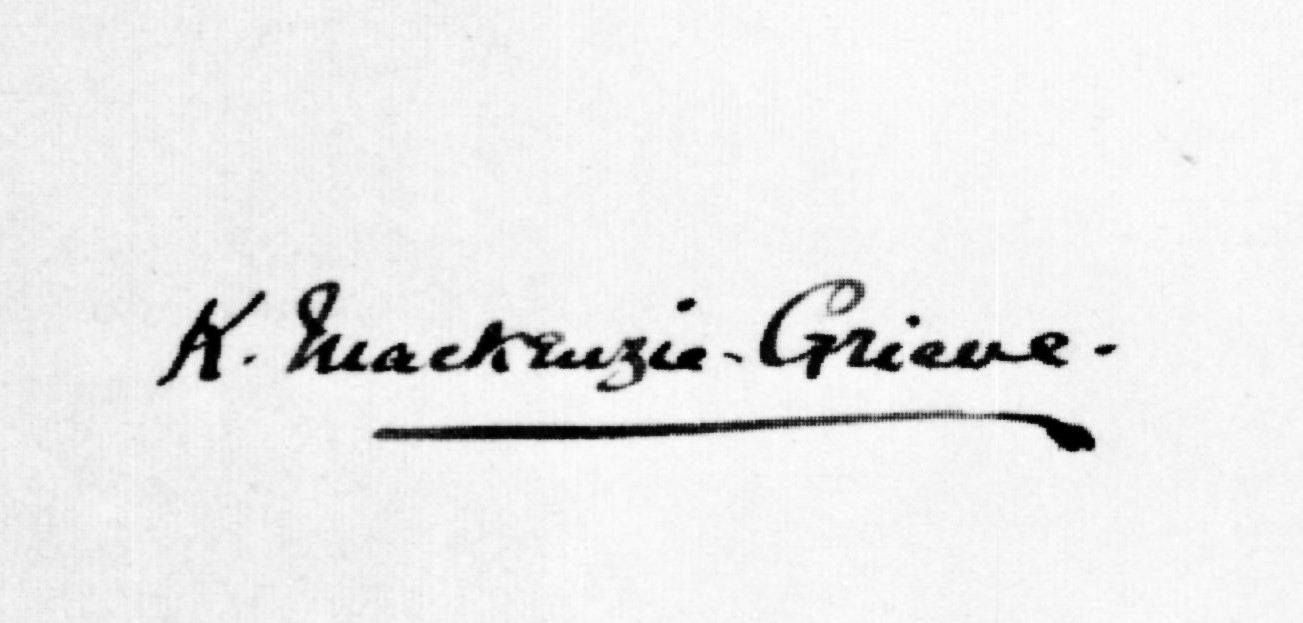 K. Mackenzie-Grieve.